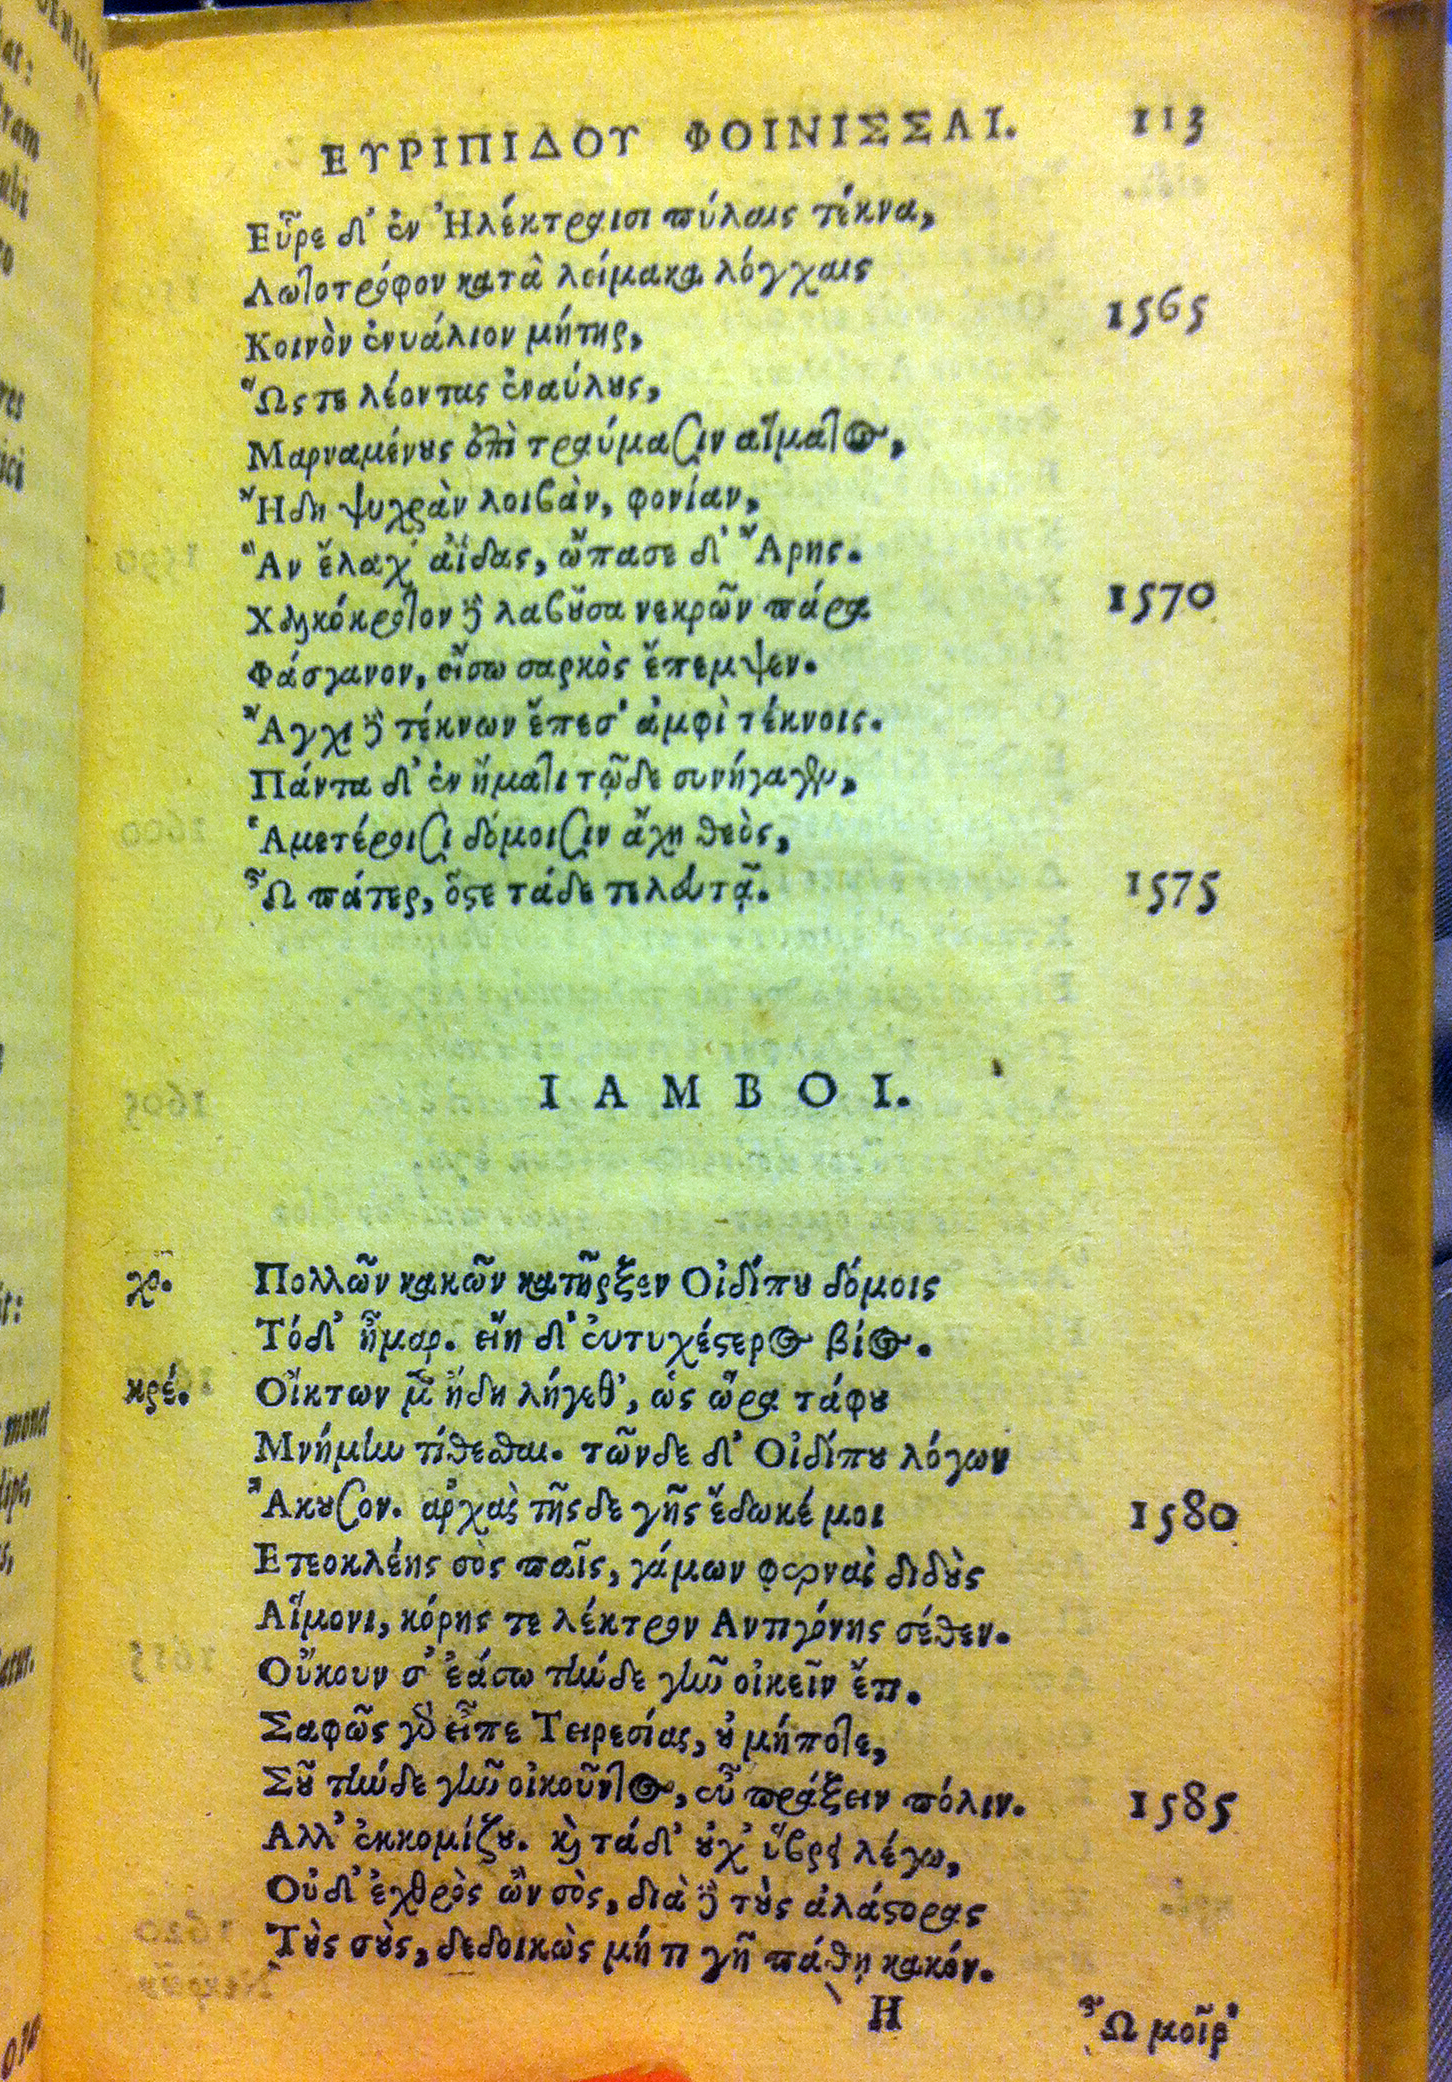 ΕΥΡΙΠΙΔΟΥ ΦΟΙΝΙΣΣΑΙ. 113
Εὗρε δ' ἐν Ἠλέκτραισι πύλαις τέκνα,
Λωτοτρόφον κατὰ λείμακα λόγχαις
Κοινὸν ἐνυάλιον μήτηρ, 1565
Ὥςτε λέοντας ἐναύλους,
Μαρναμένους ἐπὶ τραύμασιν αἵματος,
Ἤδη ψυχρὰν λοιβὰν, φονίαν,
Ἃν ἔλαχ' ἀΐδας, ὤπασε δ' Ἄρης.
Χαλκόκροτον δὲ λαβοῦσα νεκρῶν πάρα 1570
Φάσγανον, εἴσω σαρκὸς ἔπεμψεν.
Ἄγχι δὲ τέκνων ἔπεσ' ἀμφὶ τέκνοις.
Πάντα δ' ἐν ἤματι τῷδε συνήγαγεν,
Ἁμετέροισι δόμοισιν ἄχη θεὸς,
Ὦ πάτερ, ὅστε τάδε τελευτᾷ. 1575
ΙΑΜΒΟΙ.
χο. Πολλῶν κακῶν κατῆρξεν Οἰδίπου δόμοις
Τόδ' ἦμαρ. εἴη δ' εὐτυχέστερος βίος.
κρέ. Οἴκτων μὲν ἤδη λήγεθ', ὡς ὥρα τάφου
Μνήμην τίθεσθαι. τῶνδε δ' Οἰδίπου λόγων
Ἄκουσον. ἀρχὰς τῆςδε γῆς ἔδωκέ μοι 1580
Ετεοκλέης σὸς παῖς, γάμων φερνὰς διδοὺς
Αἵμονι, κόρης τε λέκτρον Αντιγόνης σέθεν.
Οὔκουν σ' ἐάσω τήνδε γῆν οἰκεῖν ἔτι.
Σαφῶς γὰρ εἶπε Τειρεσίας, οὐ μήποτε,
Σοῦ τήνδε γῆν οἰκοῦντος, εὖ πράξειν πόλιν. 1585
Αλλ' ἐκκομίζου. καὶ τάδ' οὐχ' ὕβρει λέγω,
Οὐδ' ἐχθρὸς ὢν σὸς, διὰ δὲ τοὺς ἀλάστορας
Τοὺς σοὺς, δεδοικὼς μή τι γῆ πάθῃ κακόν.
H Ὦ μοῖρ'